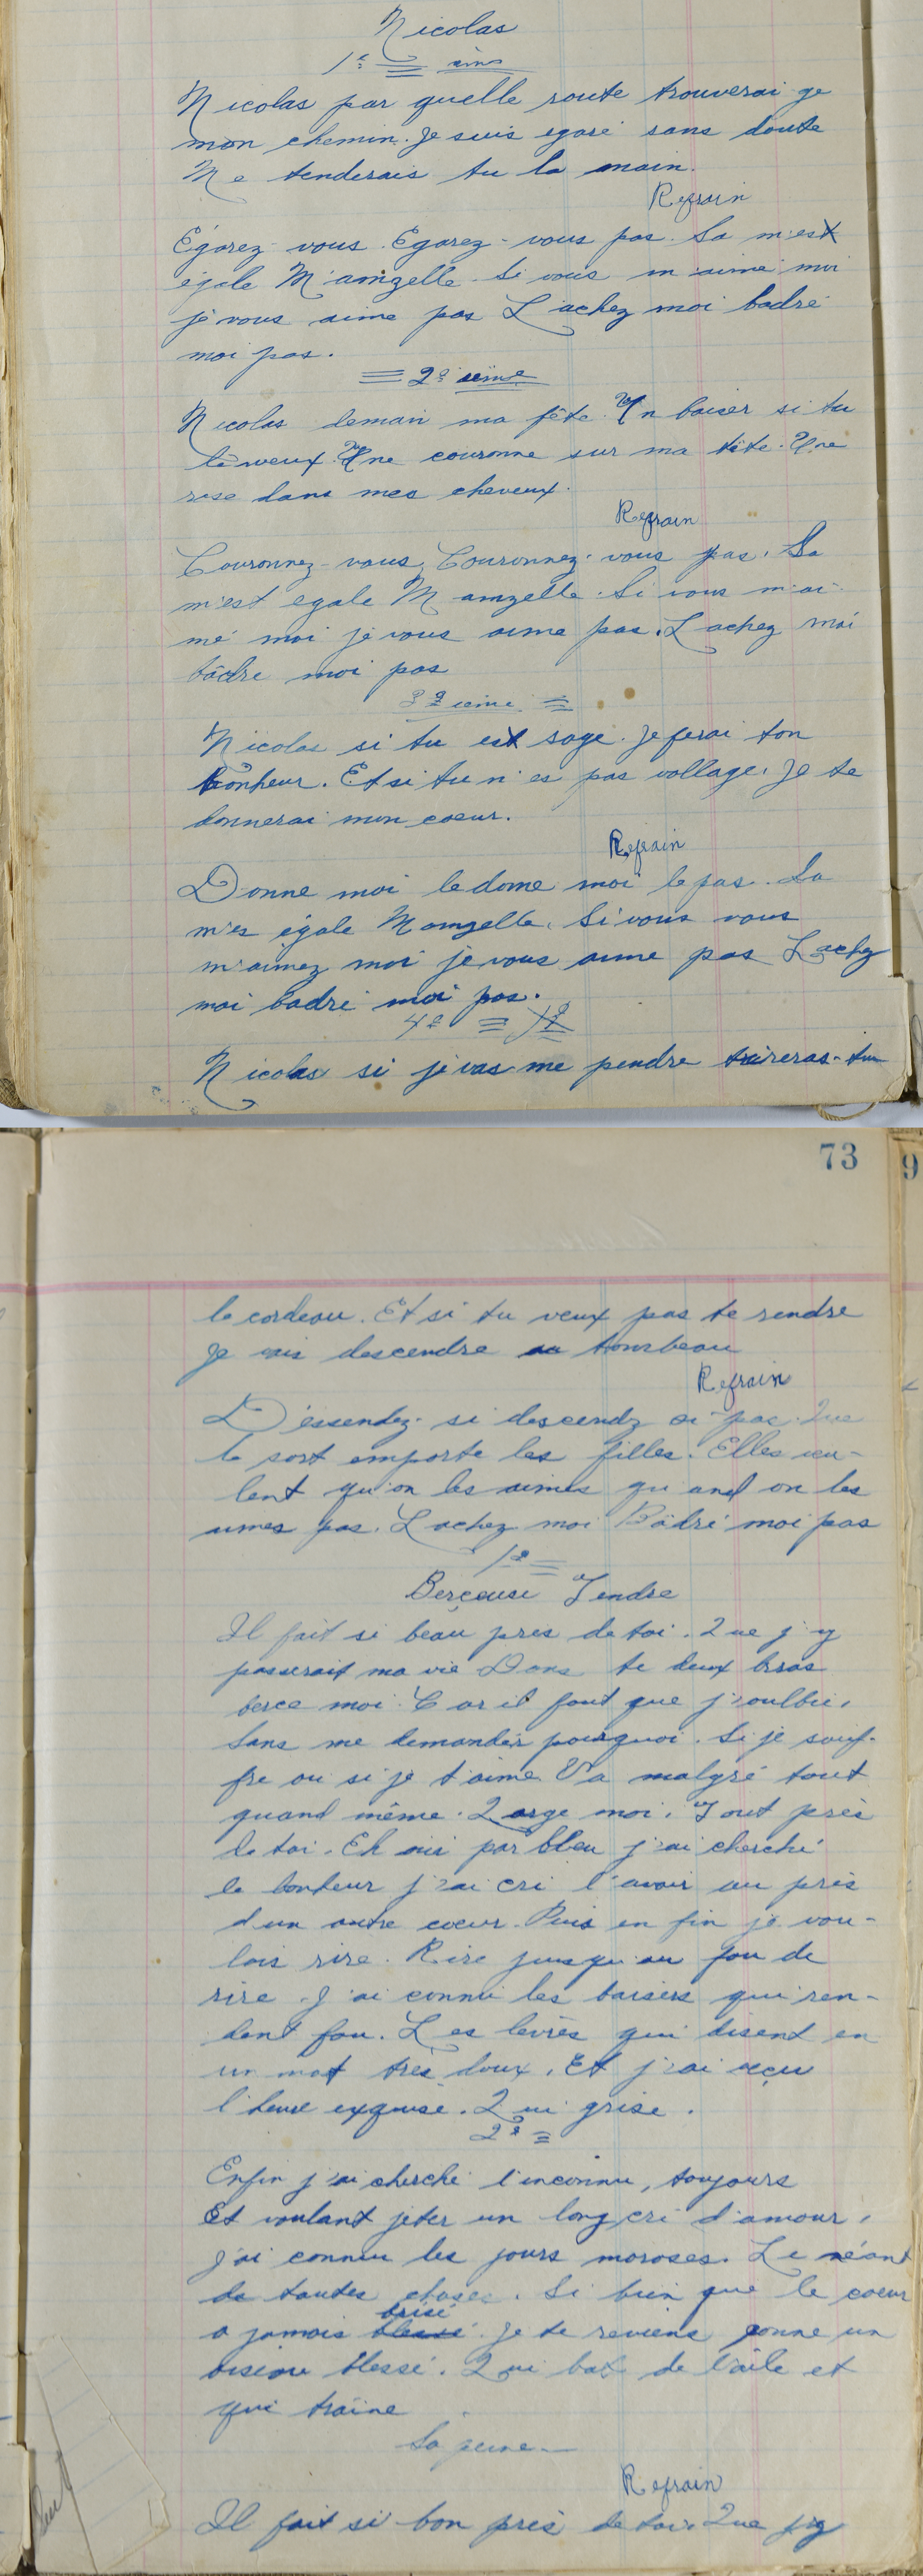 Nicolas
1e
Nicolas par quelle route trouverai je
mon chemin. Je suis egaré sans doute
Me tenderais tu la main.
Refrain
Égarez-vous. Egarez-vous pas. Sa m'est
égale M'amzelle. Si vous m'aime moi
je vous aime pas Lachez moi badré
moi pas.
2e ième
Nicolas demain ma fête. Un baiser si tu
le veux. Une couronne sur ma tête. Une
rose dans mes cheveux.
Refrain
Couronnez-vous, Couronnez-vous pas. Sa
m'est egale Mamzelle. Si vous m'ai-
me moi je vous aime pas. Lachez moi
bâdre moi pas
3e ieme
Nicolas si tu est sage. Je ferai ton
bonheur. Et si tu n'es pas vollage. Je te
donnerai mon coeur.
Refrain
Donne moi le donne moi le pas. Sa
m'es égale Mamzelle. Si vous vous
m'aimez moi je vous aime pas Lachez
moi badré moi pas.
4e
Nicolas si je vas me pendre tireras-tu
73
le cordeau. Et si tu veux pas te rendre
Je vais descendre au tombeau
Refrain
Déssendez-si descendz si pas. Que
le sort emporte les filles. Elles veu-
lent qu'on les aimes quand on les
aimes pas. Lachez moi Bâdré moi pas
1e
Berçeuse Tendre
Il fait si beau pres de toi. Que j'y
passerait ma vie Dans te deux bras
berce moi. Car il faut que j'oulbie,
Sans me demander pourquoi. Si je souf-
fre ou si je t'aime. Va malgré tout
quand même. Large moi. Tout près
de toi. Eh oui par bleu j'ai cherché
le bonheur j'ai cri l'avoir au près
d'un autre coeur. Puis en fin je vou-
lais rire. Rire jusqu'au fou de
rire. J'ai connu les baisers qui ren-
dent fou. Les levres qui disent en
un mot très doux. Et j'ai vécu
l'heure exquise. Qui grise.
2e
Enfin j'ai cherché l'inconnu, toujours
Et voulant jeter un long cri d'amour,
J'ai connu les jours moroses. Le néant
de toutes choses. Si bien que le coeur
brisé
a jamais blessé. Je te reviens conne un
oiseau blessé. Qui bat de l'aile et
qui traîne
Sa peine
Refrain
Il fait si bon près de toi. Que j'y